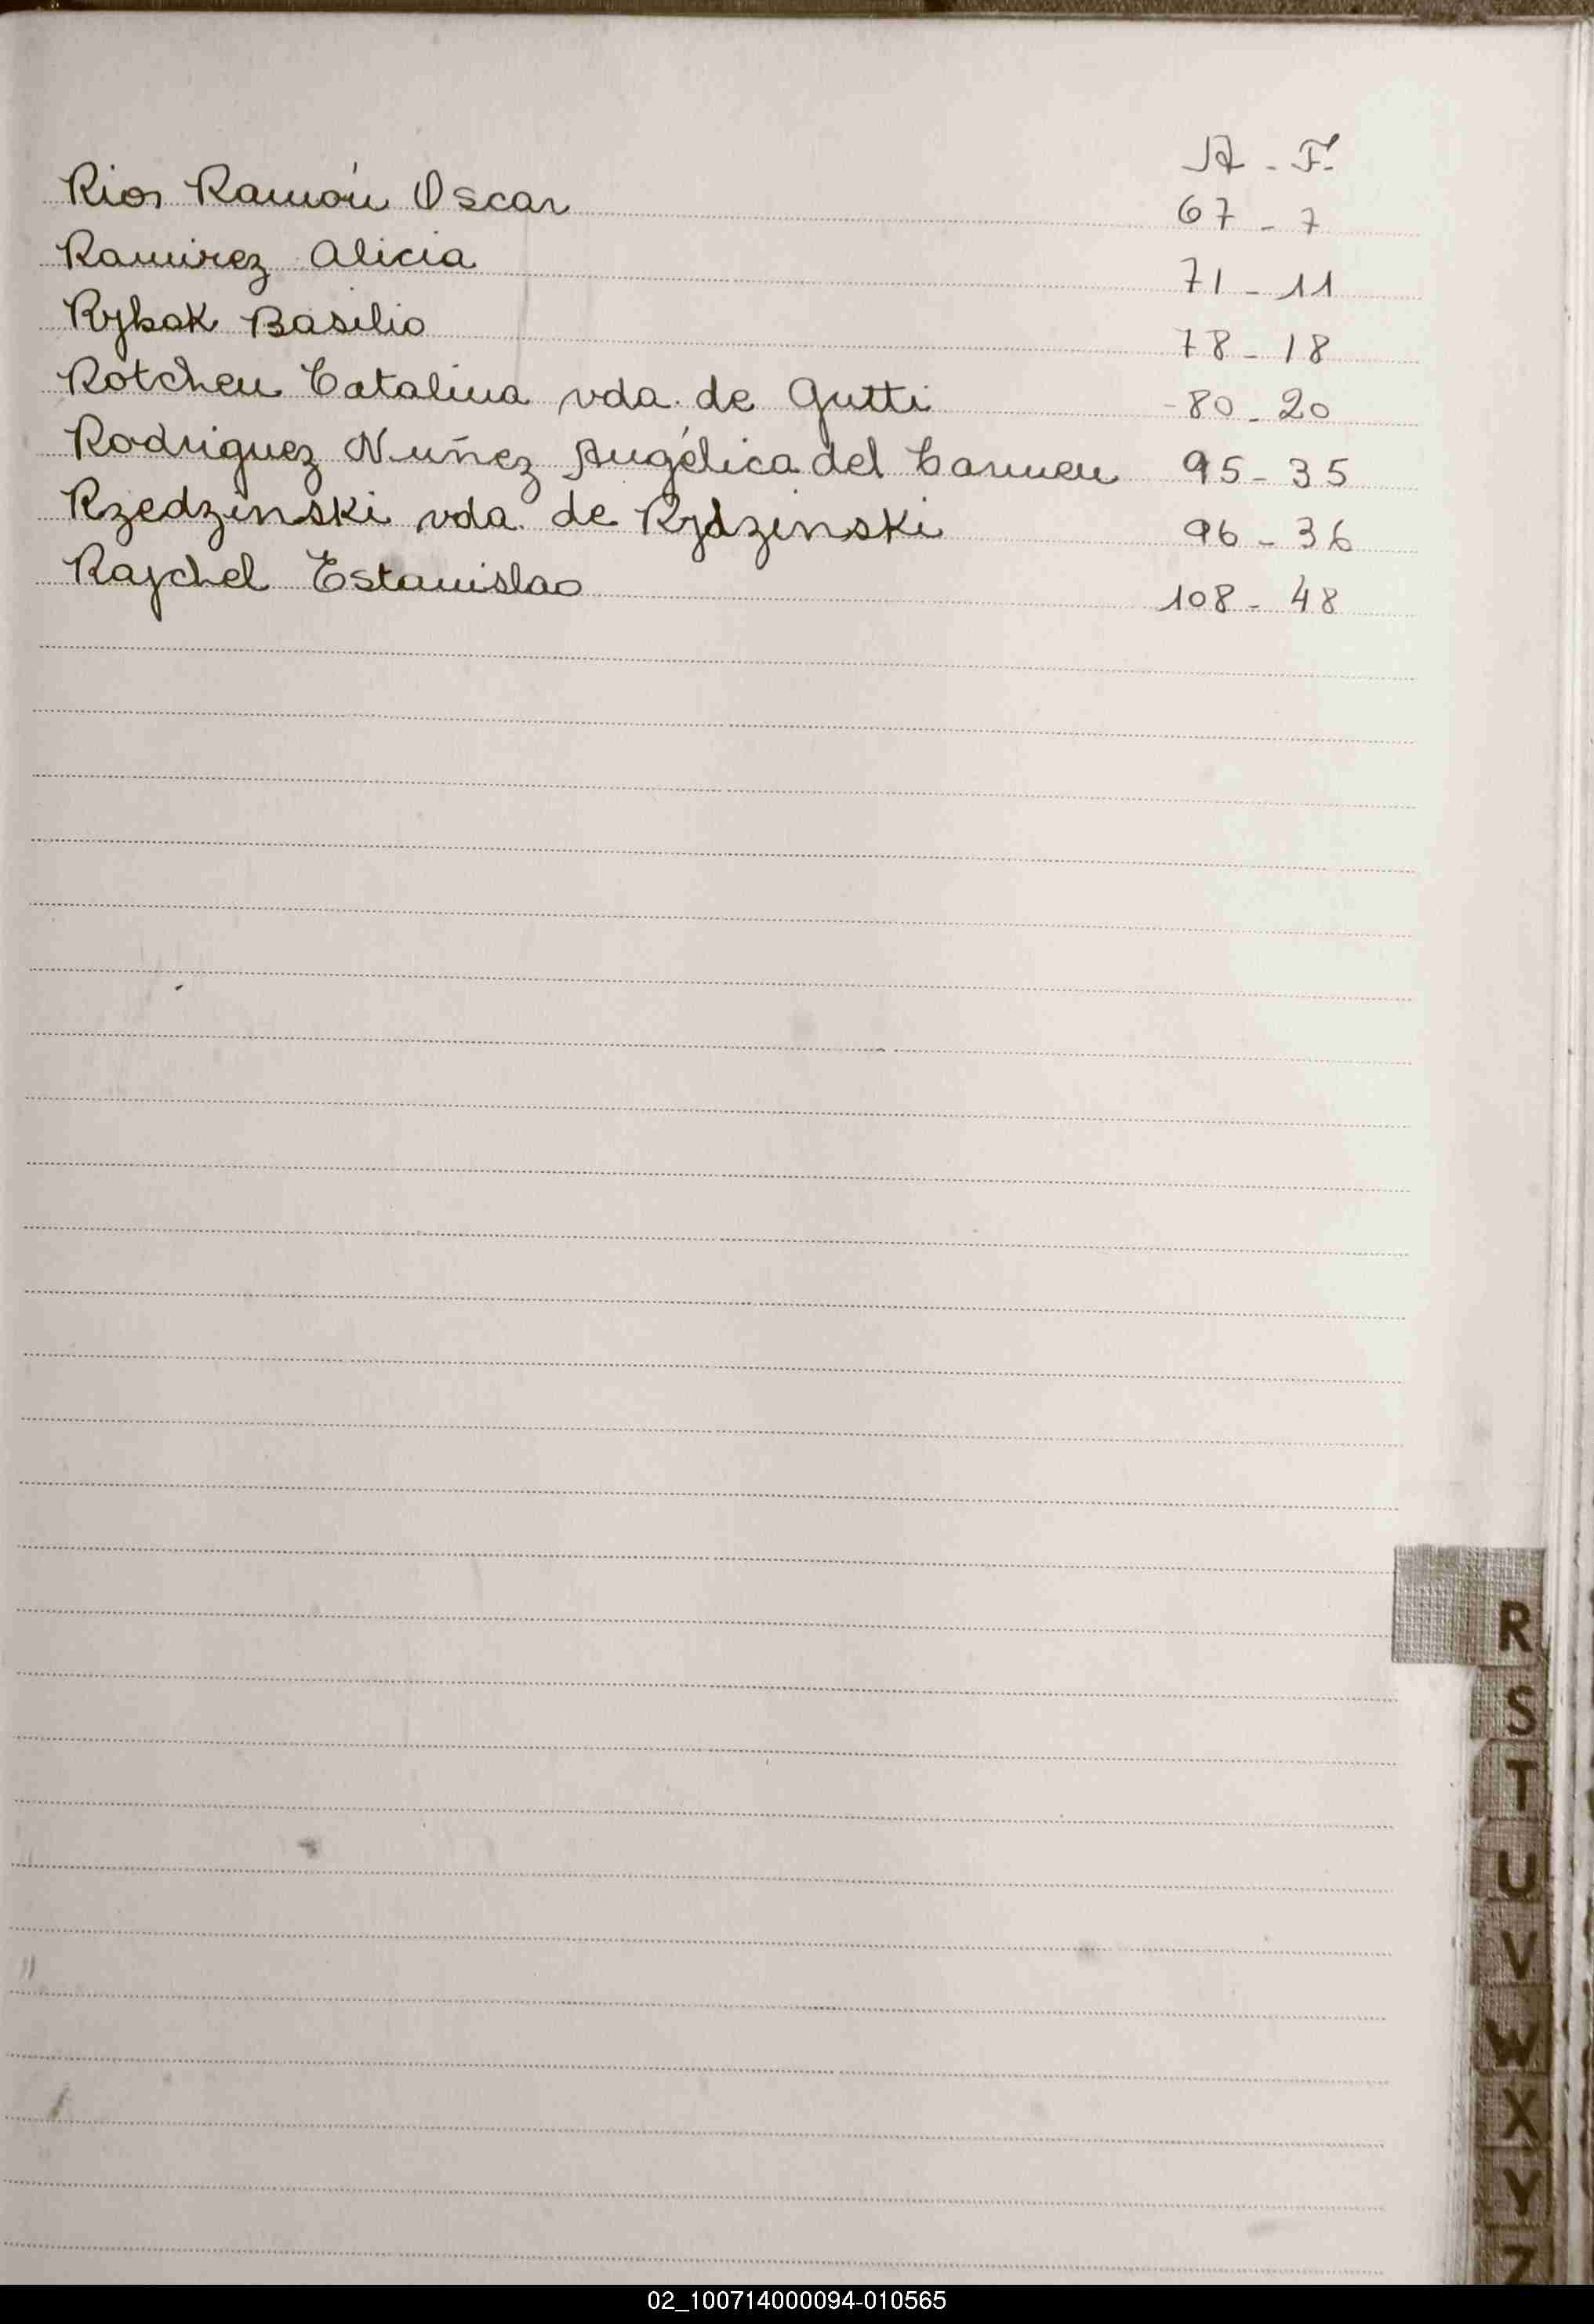 A - F.
Rios Ramón Oscar 67 - 7
Ramirez Alicia 71 - 11
Rybak Basilio 78 - 18
Rotchen Catalina vda. de Gutti 80 - 20
Rodriguez Nuñez Angélica del Carmen 95 - 35
Rzedzinski vda. de Rydzinski 96 - 36
Rajchel Estanislao 108 - 48
R
S
T
U
V
W
X
Y
Z
02_100714000094-010565